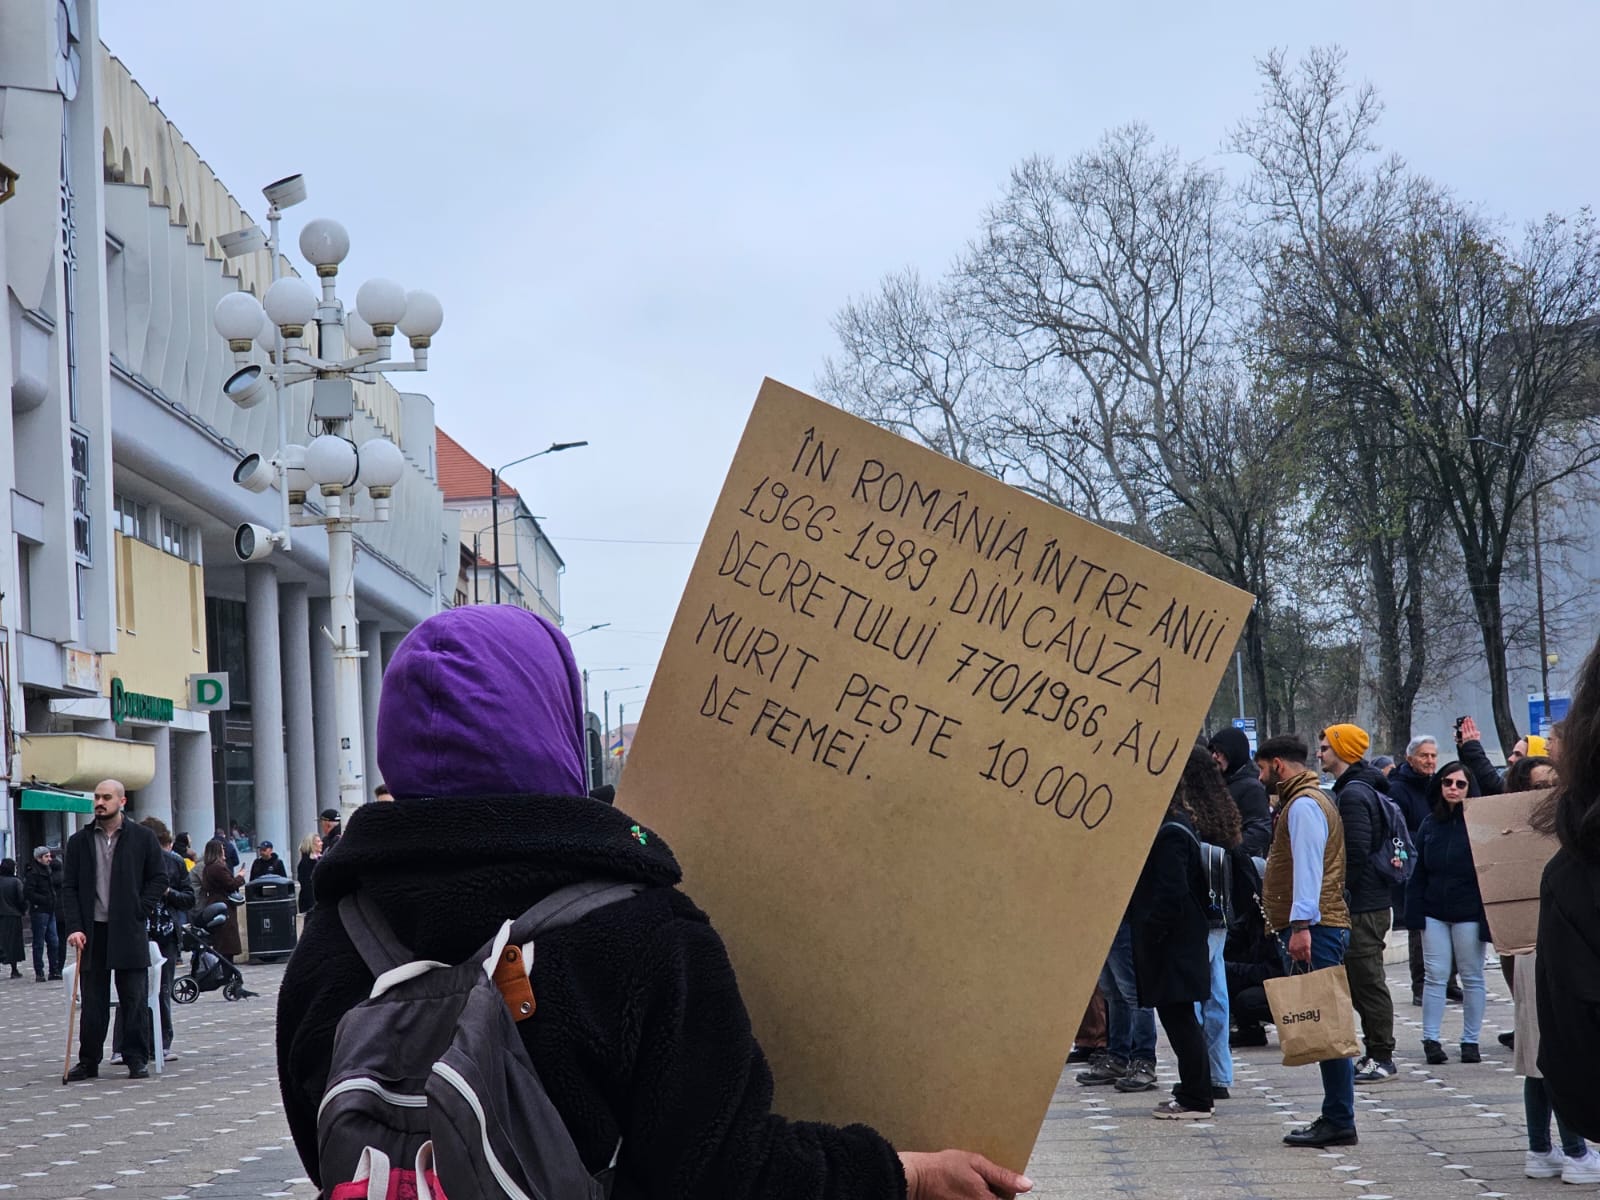 ÎN ROMÂNIA, ÎNTRE ANII
1966-1989, DIN CAUZA
DECRETULUI 770/1966, AU
MURIT PESTE 10.000
DE FEMEI.
D
sinsay